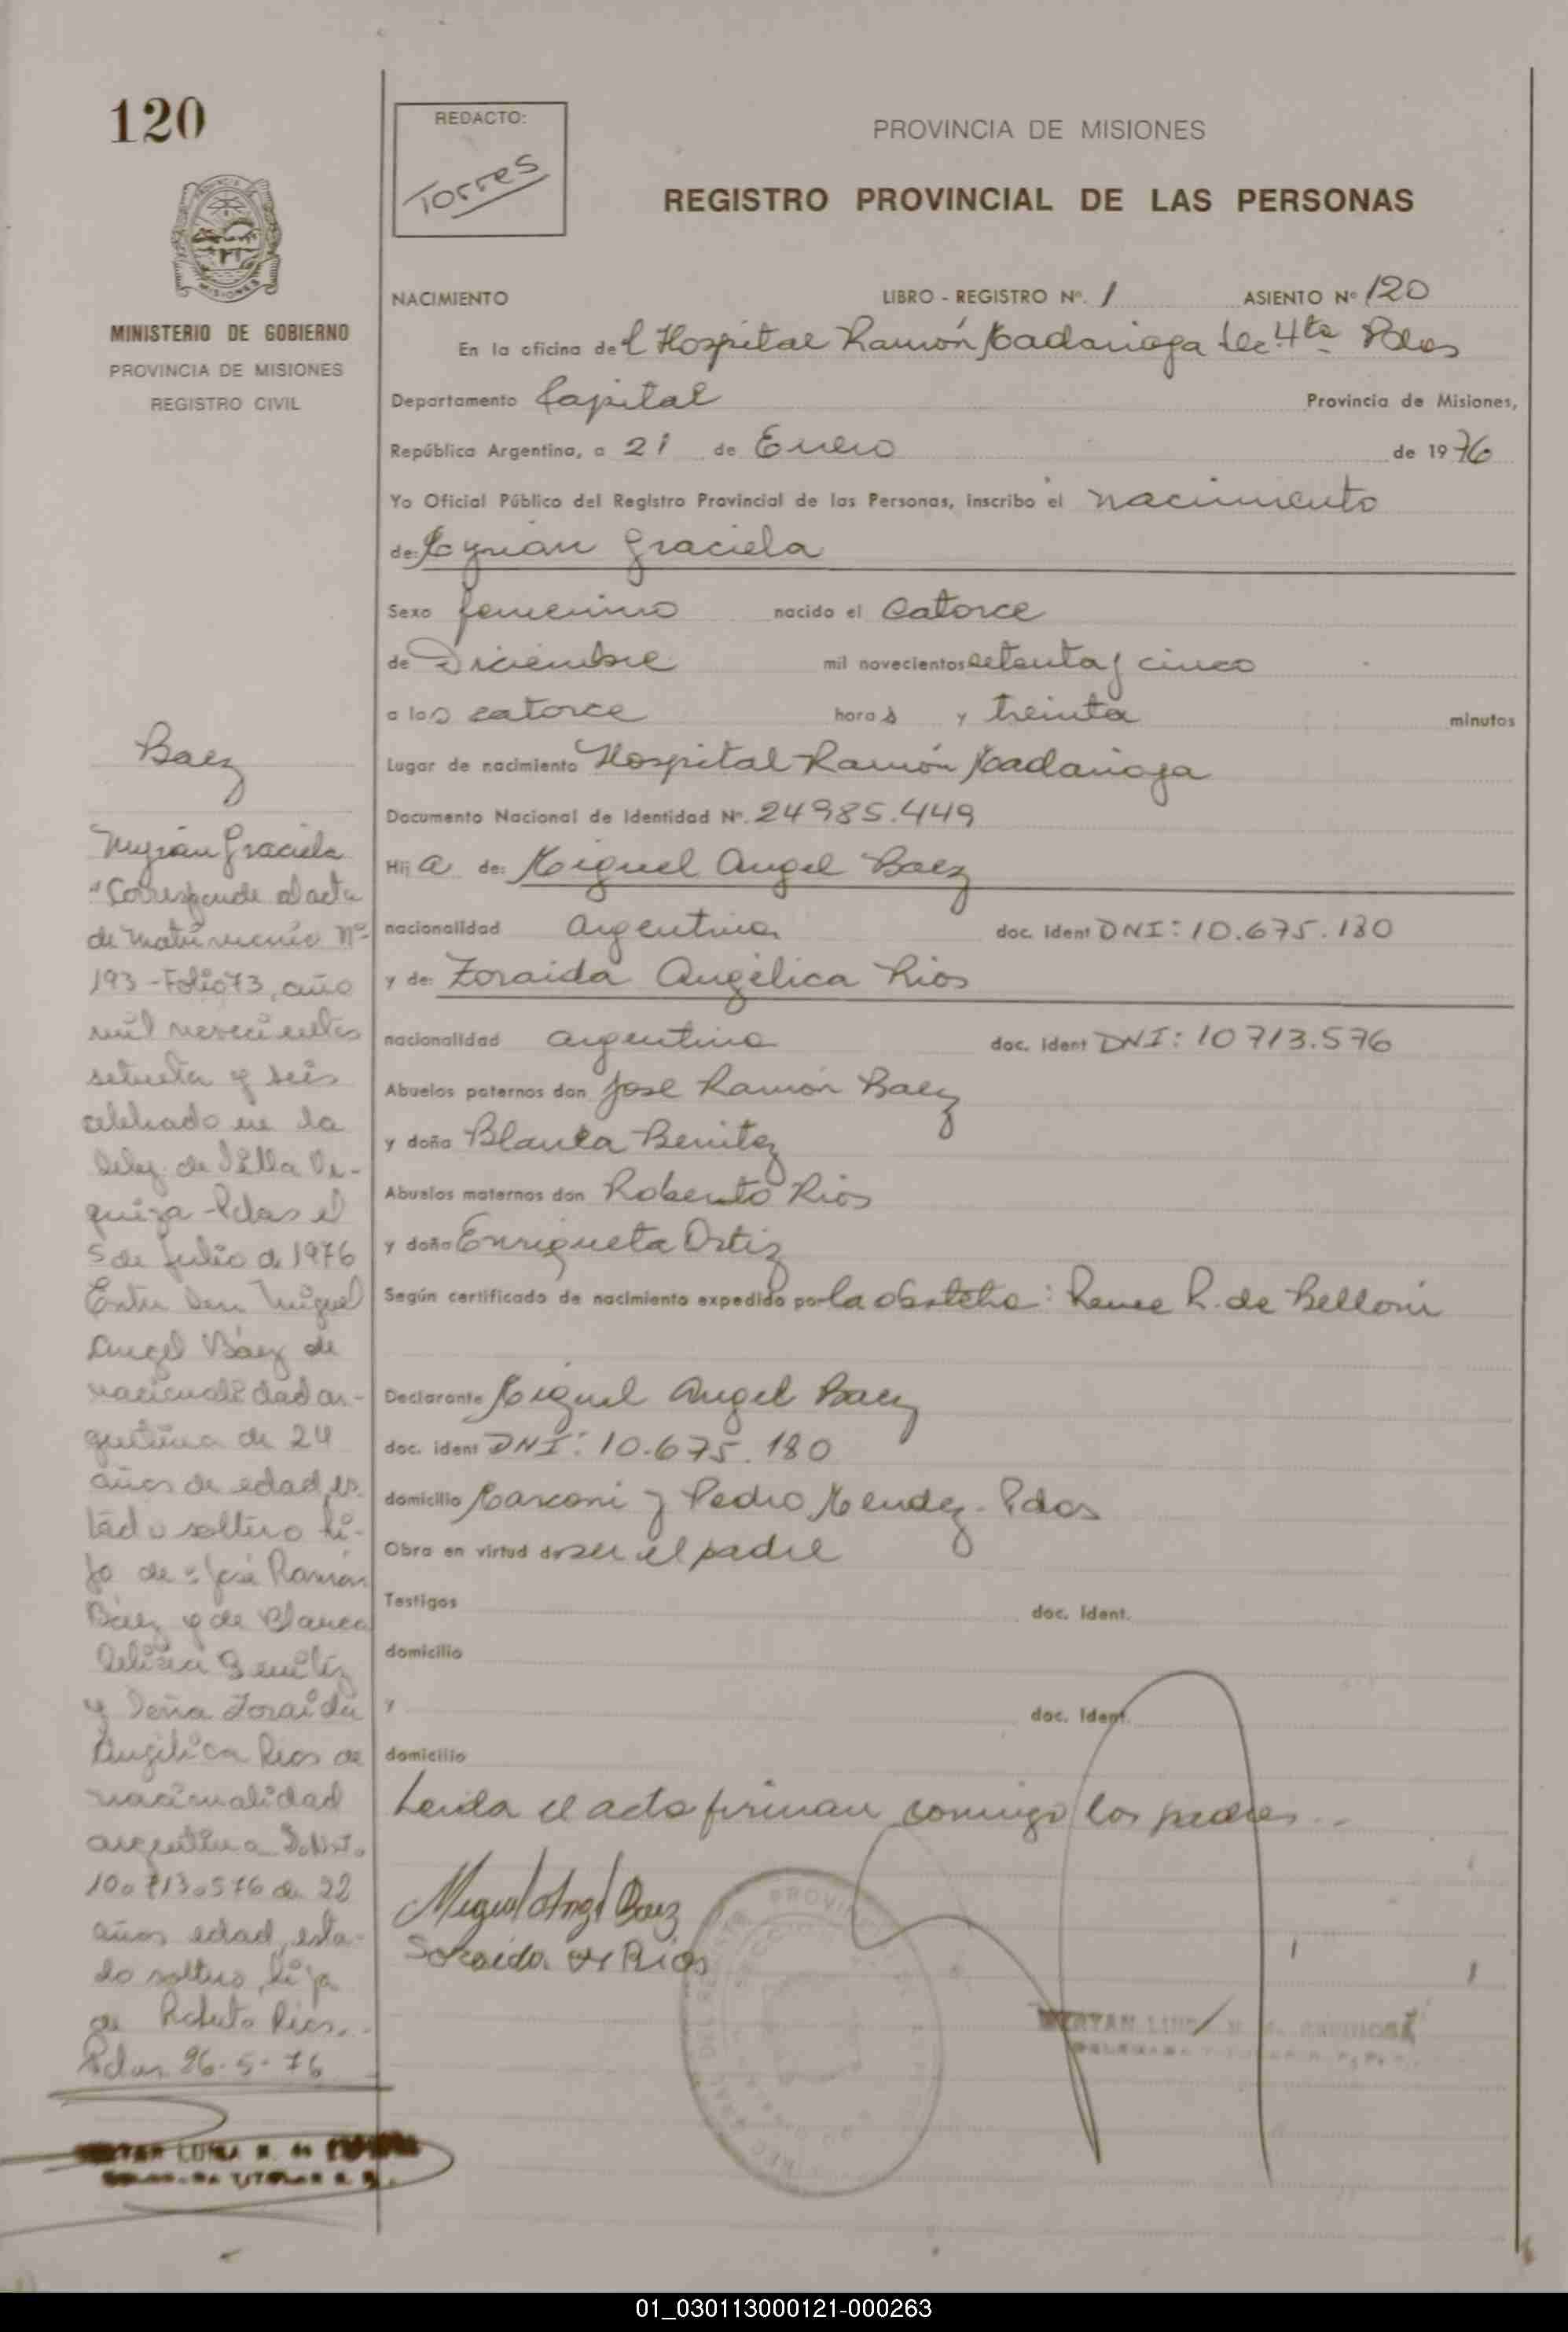 120
MINISTERIO DE GOBIERNO
PROVINCIA DE MISIONES
REGISTRO CIVIL
REDACTO:
Torres
PROVINCIA DE MISIONES
REGISTRO PROVINCIAL DE LAS PERSONAS
NACIMIENTO LIBRO - REGISTRO Nº. 1 ASIENTO Nº 120
En la oficina del Hospital Ramón Madariaga Sec 4ta Pdas
Departamento Capital Provincia de Misiones,
República Argentina, a 21 de Enero de 1976
Yo Oficial Público del Registro Provincial de las Personas, inscribo el nacimiento
de: Myrian Graciela
Sexo femenino nacido el catorce
de Diciembre mil novecientos setenta y cinco
a las catorce horas y treinta minutos
Lugar de nacimiento Hospital Ramón Madariaga
Documento Nacional de Identidad Nº. 24985.449
Hija de: Miguel Angel Baez
nacionalidad argentina doc. ident DNI: 10.675.180
y de: Zoraida Angélica Rios
nacionalidad argentina doc. ident DNI: 10713.576
Abuelos paternos don José Ramón Baez
y doña Blanca Benitez
Abuelos maternos don Roberto Rios
y doña Enriqueta Ortiz
Según certificado de nacimiento expedido por la obstetra: Renee R. de Belloni
Declarante Miguel Angel Baez
doc. ident DNI: 10.675.180
domicilio Marconi y Pedro Mendez - Pdas
Obra en virtud de ser el padre
Testigos doc. Ident.
domicilio
y doc. Ident.
domicilio
Leida el acta firman conmigo los padres --
Miguel Angel Baez
Soraida A Rios
Baez
Myrian Graciela
"Corresponde al acta
de matrimonio Nº
193 - Folio 73, año
mil novecientos
setenta y seis
celebrado en la
Deleg. de Villa Ur-
quiza - Pdas el
5 de Julio de 1976
Entre Don Miguel
Angel Báez de
nacionalidad ar-
gentina de 24
años de edad, es-
tado soltero hi-
jo de: José Ramón
Báez y de Blanca
Benitez
y Doña Zoraida
Angélica Rios de
nacionalidad
argentina
10.713.576 de 22
años edad, esta-
do soltera, hija
de Roberto Rios.
Pdas 26-5-76
LUISA
TITULAR
01_030113000121-000263